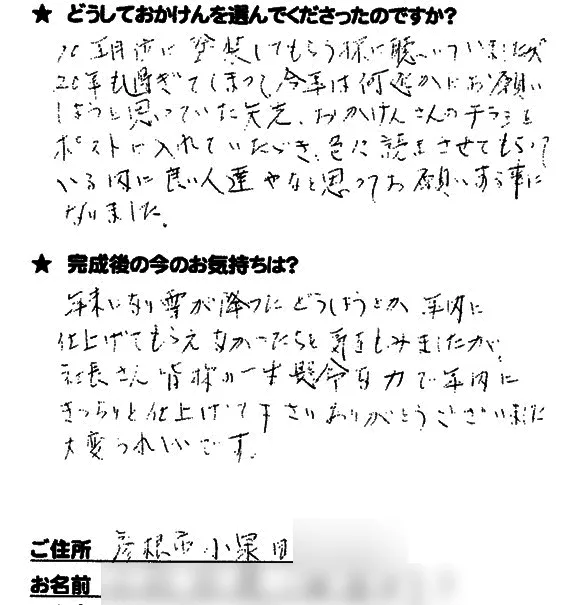 ★ どうしておかけんを選んでくださったのですか?
10年目位に塗装してもらう様に聴いていましたが
20年も過ぎてしまって今年は何処かにお願い
しようと思っていた矢先、おかけんさんのチラシを
ポストに入れていただき、色々読まさせてもらって
いる内に良い人達やなと思ってお願いする事に
なりました。
★ 完成後の今のお気持ちは?
年末になり雪が降ったらどうしようとか、年内に
仕上げてもらえなかったらと気をもみましたが、
社長さん皆様の一生懸命な力で年内に
きっちりと仕上げて下さりありがとうございました
大変うれしいです。
ご住所 彦根市小泉町
お名前